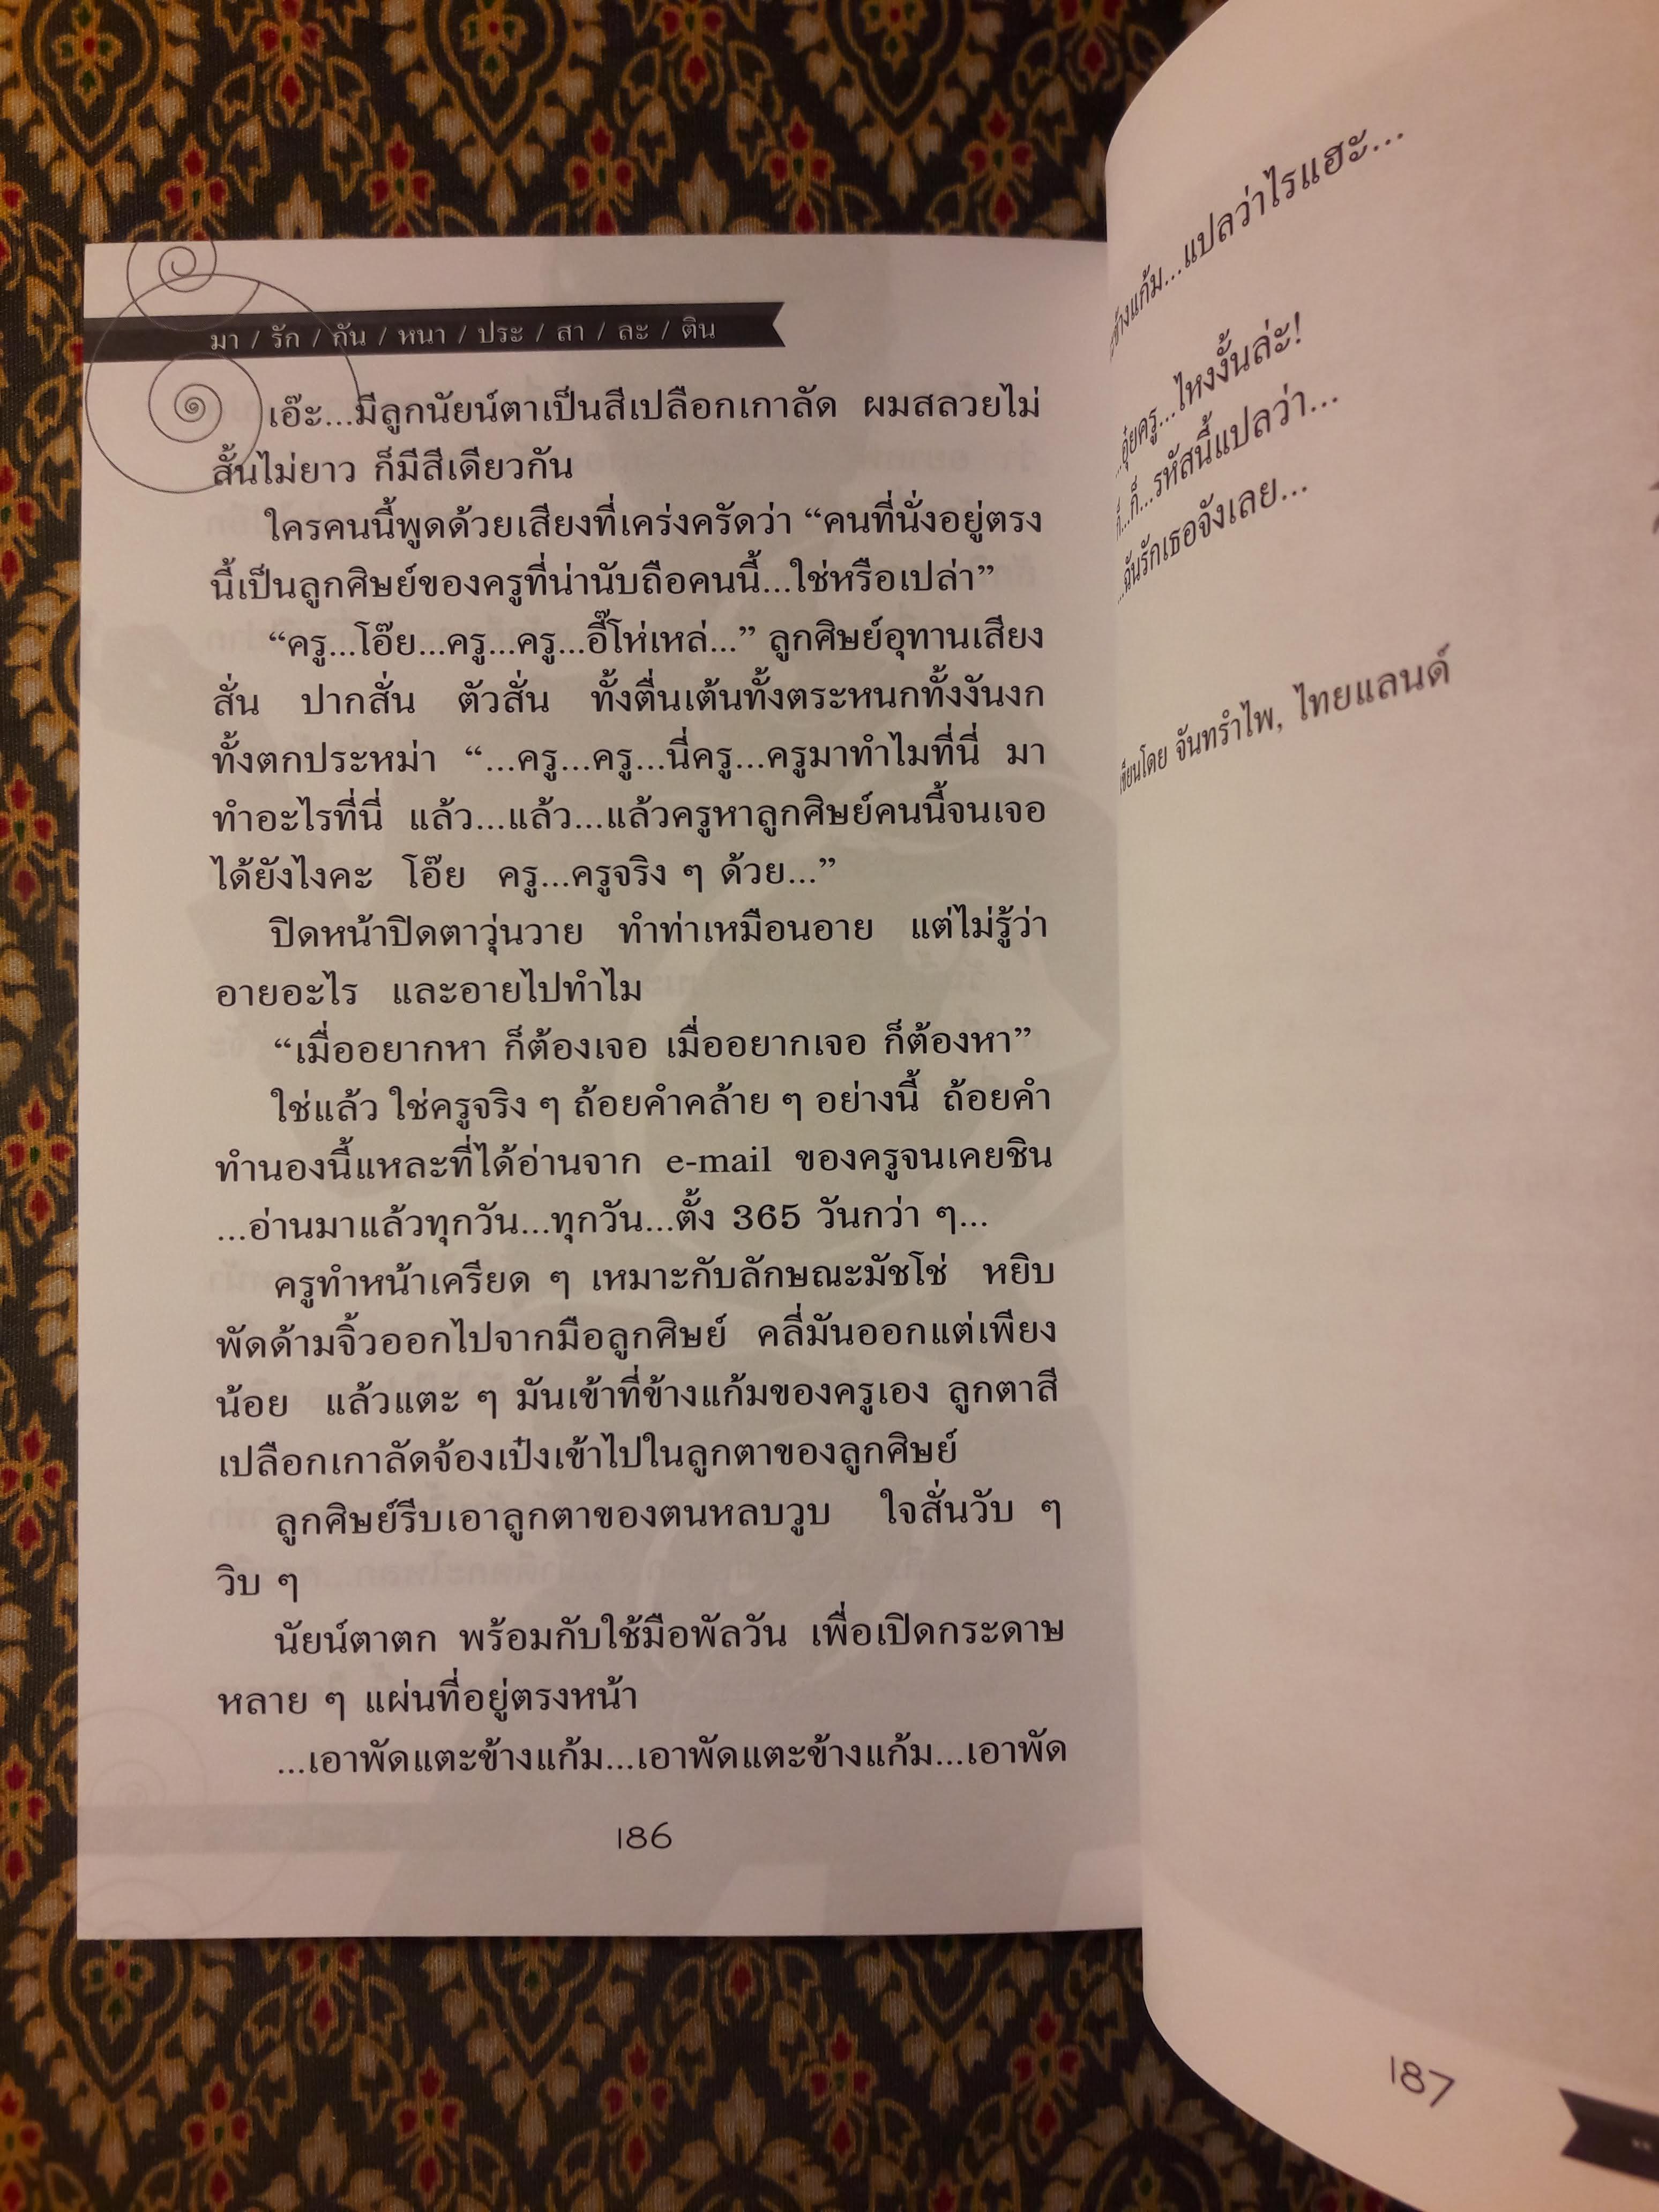 มา / รัก / กัน / หนา / ประ / สา / ละ / ติน
เอ๊ะ...มีลูกนัยน์ตาเป็นสีเปลือกเกาลัด ผมสลวยไม่
สั้นไม่ยาว ก็มีสีเดียวกัน
ใครคนนี้พูดด้วยเสียงที่เคร่งครัดว่า “คนที่นั่งอยู่ตรง
นี้เป็นลูกศิษย์ของครูที่น่านับถือคนนี้...ใช่หรือเปล่า”
“ครู...โอ๊ย...ครู...ครู...อี๊โห่เหล่...” ลูกศิษย์อุทานเสียง
สั่น ปากสั่น ตัวสั่น ทั้งตื่นเต้นทั้งตระหนกทั้งงันงก
ทั้งตกประหม่า “...ครู...ครู...นี่ครู...ครูมาทำไมที่นี่ มา
ทำอะไรที่นี่ แล้ว...แล้ว...แล้วครูหาลูกศิษย์คนนี้จนเจอ
ได้ยังไงคะ โอ๊ย ครู...ครูจริง ๆ ด้วย...”
ปิดหน้าปิดตาวุ่นวาย ทำท่าเหมือนอาย แต่ไม่รู้ว่า
อายอะไร และอายไปทำไม
“เมื่ออยากหา ก็ต้องเจอ เมื่ออยากเจอ ก็ต้องหา”
ใช่แล้ว ใช่ครูจริง ๆ ถ้อยคำคล้าย ๆ อย่างนี้ ถ้อยคำ
ทำนองนี้แหละที่ได้อ่านจาก e-mail ของครูจนเคยชิน
...อ่านมาแล้วทุกวัน...ทุกวัน...ตั้ง 365 วันกว่า ๆ...
ครูทำหน้าเครียด ๆ เหมาะกับลักษณะมัชโช่ หยิบ
พัดด้ามจิ้วออกไปจากมือลูกศิษย์ คลี่มันออกแต่เพียง
น้อย แล้วแตะ ๆ มันเข้าที่ข้างแก้มของครูเอง ลูกตาสี
เปลือกเกาลัดจ้องเป๋งเข้าไปในลูกตาของลูกศิษย์
ลูกศิษย์รีบเอาลูกตาของตนหลบวูบ ใจสั่นวับ ๆ
วิบ ๆ
นัยน์ตาตก พร้อมกับใช้มือพัลวัน เพื่อเปิดกระดาษ
หลาย ๆ แผ่นที่อยู่ตรงหน้า
...เอาพัดแตะข้างแก้ม...เอาพัดแตะข้างแก้ม...เอาพัด
186
ข้างแก้ม...แปลว่าไรแฮะ...
...อุ๋ยครู...ไหงงั้นล่ะ!
ก็...ก็...รหัสนี้แปลว่า...
...ฉันรักเธอจังเลย...
เขียนโดย จันทรำไพ, ไทยแลนด์
187